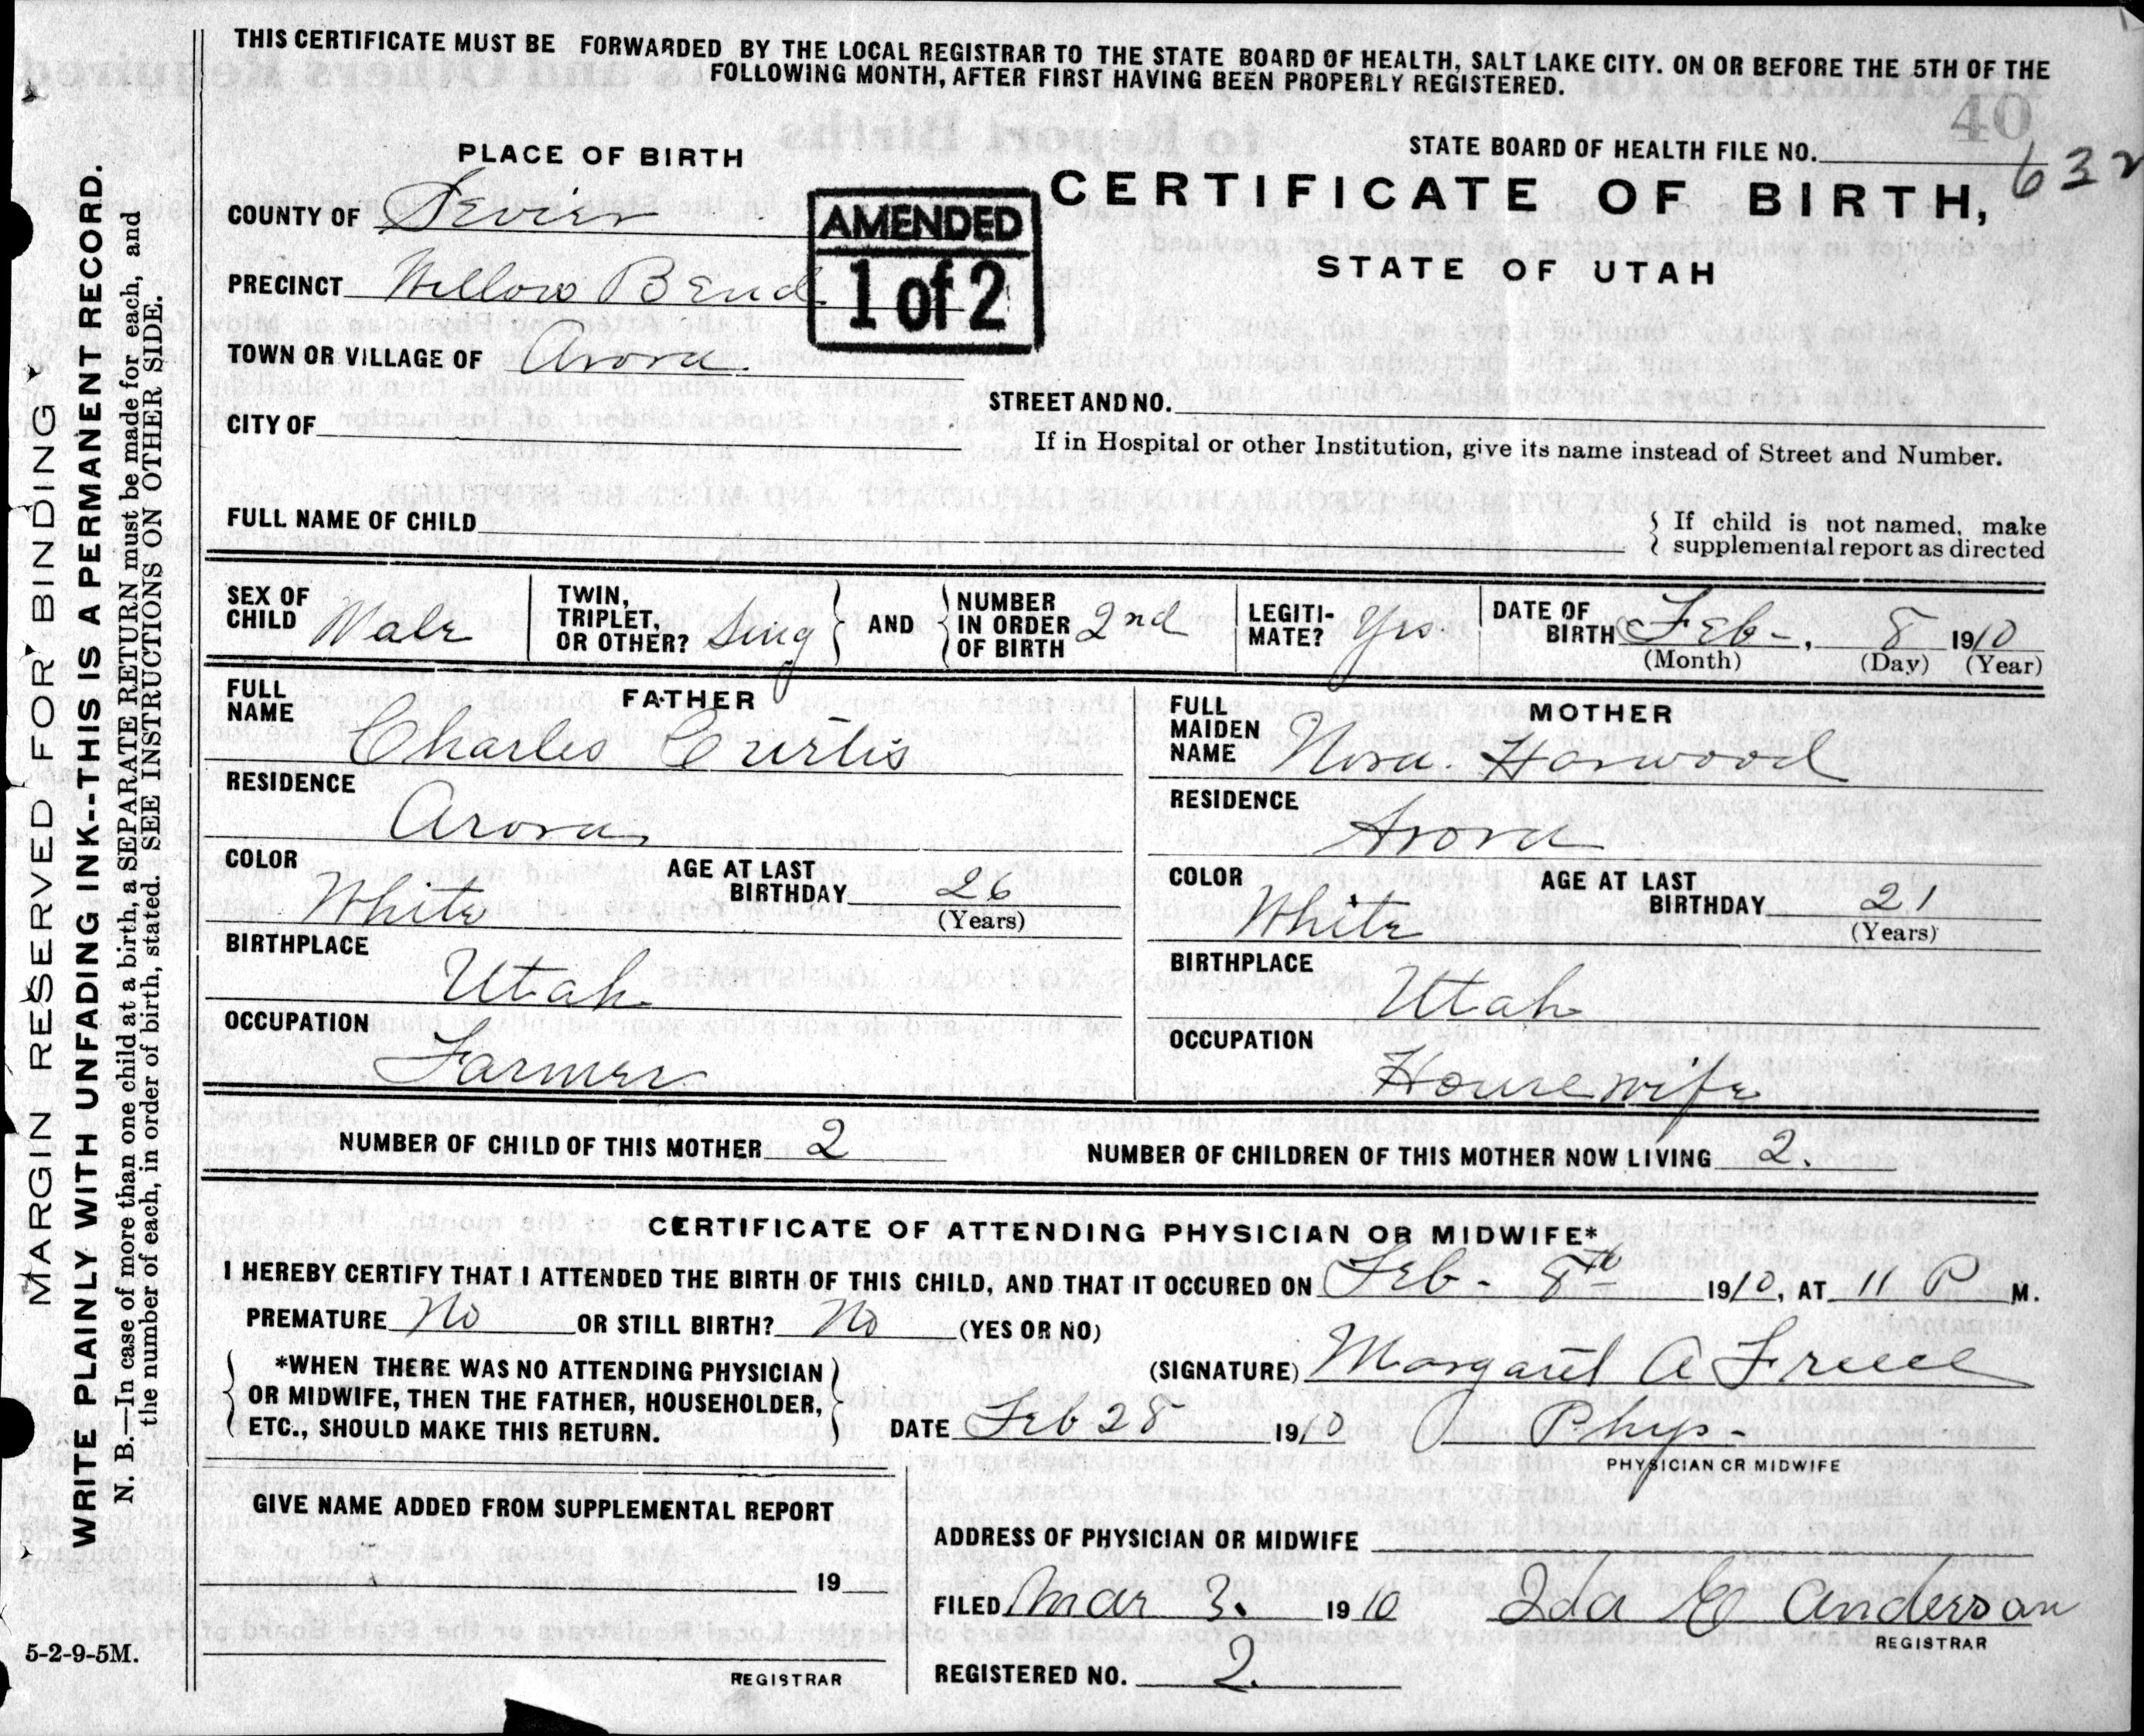 THIS CERTIFICATE MUST BE FORWARDED BY THE LOCAL REGISTRAR TO THE STATE BOARD OF HEALTH, SALT LAKE CITY. ON OR BEFORE THE 5TH OF THE
FOLLOWING MONTH, AFTER FIRST HAVING BEEN PROPERLY REGISTERED.
40
PLACE OF BIRTH
STATE BOARD OF HEALTH FILE NO.
632
COUNTY OF Sevier
CERTIFICATE OF BIRTH,
AMENDED
1 of 2
STATE OF UTAH
PRECINCT Willow Bend
TOWN OR VILLAGE OF Arora
STREET AND NO.
CITY OF
If in Hospital or other Institution, give its name instead of Street and Number.
FULL NAME OF CHILD
If child is not named, make
supplemental report as directed
SEX OF CHILD Male
TWIN, TRIPLET, OR OTHER? Sing
AND
NUMBER IN ORDER OF BIRTH 2nd
LEGITI-MATE? Yes
DATE OF BIRTH Feb-, 8 1910
(Month) (Day) (Year)
FATHER
FULL NAME Charles Curtis
RESIDENCE
Arora
COLOR White
AGE AT LAST BIRTHDAY 26
(Years)
BIRTHPLACE
Utah
OCCUPATION
Farmer
MOTHER
FULL MAIDEN NAME Nora Harwood
RESIDENCE
Arora
COLOR White
AGE AT LAST BIRTHDAY 21
(Years)
BIRTHPLACE
Utah
OCCUPATION
Housewife
NUMBER OF CHILD OF THIS MOTHER 2
NUMBER OF CHILDREN OF THIS MOTHER NOW LIVING 2.
CERTIFICATE OF ATTENDING PHYSICIAN OR MIDWIFE*
I HEREBY CERTIFY THAT I ATTENDED THE BIRTH OF THIS CHILD, AND THAT IT OCCURED ON Feb- 8th 1910, AT 11 P M.
PREMATURE No OR STILL BIRTH? No (YES OR NO)
*WHEN THERE WAS NO ATTENDING PHYSICIAN
OR MIDWIFE, THEN THE FATHER, HOUSEHOLDER,
ETC., SHOULD MAKE THIS RETURN.
(SIGNATURE) Margaret A
DATE Feb 28 1910 Phys-
PHYSICIAN OR MIDWIFE
GIVE NAME ADDED FROM SUPPLEMENTAL REPORT
19
REGISTRAR
ADDRESS OF PHYSICIAN OR MIDWIFE
FILED Mar 3. 1910 Ida Anderson
REGISTRAR
REGISTERED NO. 2
5-2-9-5M.
MARGIN RESERVED FOR BINDING
WRITE PLAINLY WITH UNFADING INK--THIS IS A PERMANENT RECORD.
N. B.—In case of more than one child at a birth, a SEPARATE RETURN must be made for each, and
the number of each, in order of birth, stated. SEE INSTRUCTIONS ON OTHER SIDE.